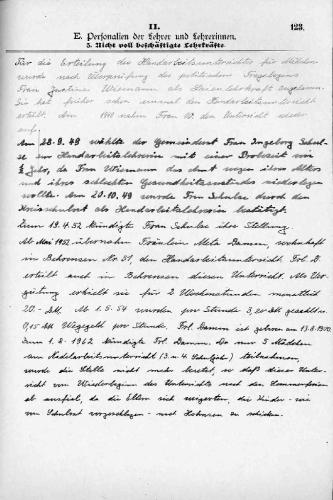 II.
123.
E. Personalien der Lehrer und Lehrerinnen.
5. Nicht voll beschäftigte Lehrkräfte.
Für die Erteilung des Handarbeitsunterrichts für Mädchen
wurde nach Überprüfung des politischen Fragebogens
Frau Wiemann als Laienlehrkraft
Sie hat früher schon einmal den Handarbeitsunterricht
erteilt. Am nahm Frau W. den Unterricht wieder
auf.
Am 28.9.49 wählte der Gemeinderat Frau Ingeborg Schul-
ze zur Handarbeitslehrerin mit einer Probezeit von
½ Jahr, da Frau Wiemann das Amt wegen ihres Alters
und ihres schlechten Gesundheitszustandes niederlegen
wollte. Am 20.10.49 wurde Frau Schulze durch den
Kreisschulrat als Handarbeitslehrerin bestätigt.
Zum 19.4.52 kündigte Frau Schulze ihre Stellung.
Ab Mai 1952 übernahm Fräulein Meta Damm, wohnhaft
in Behrensen Nr. 31, den Handarbeitsunterricht. Frl. D.
erteilt auch in Behrensen diesen Unterricht. Als Ver-
gütung erhielt sie für 2 Wochenstunden monatlich
20.- DM. Ab 1.5.54 wurden pro Stunde gezahlt u.
0,15 DM Wegegeld pro Stunde. Frl. Damm ist geboren am
Zum 1.8.1962 kündigte Frl. Damm. Da nur 5 Mädchen
am Nadelarbeitsunterricht (3. u. 4. Schuljahr) teilnahmen,
wurde die Stelle nicht mehr besetzt, so daß dieser Unter-
richt von Wiederbeginn des Unterrichts nach den Sommerferien
ab ausfiel, da die Eltern sich weigerten, die Kinder - wie
vom Schulrat vorgeschlagen - nach zu schicken.